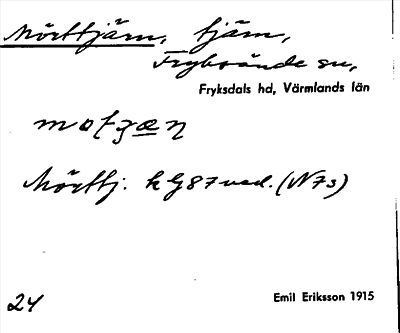 Mörttjärn, tjärn,
Fryksände sn,
Fryksdals hd, Värmlands län
Mörttj. k G87
24
Emil Eriksson 1915